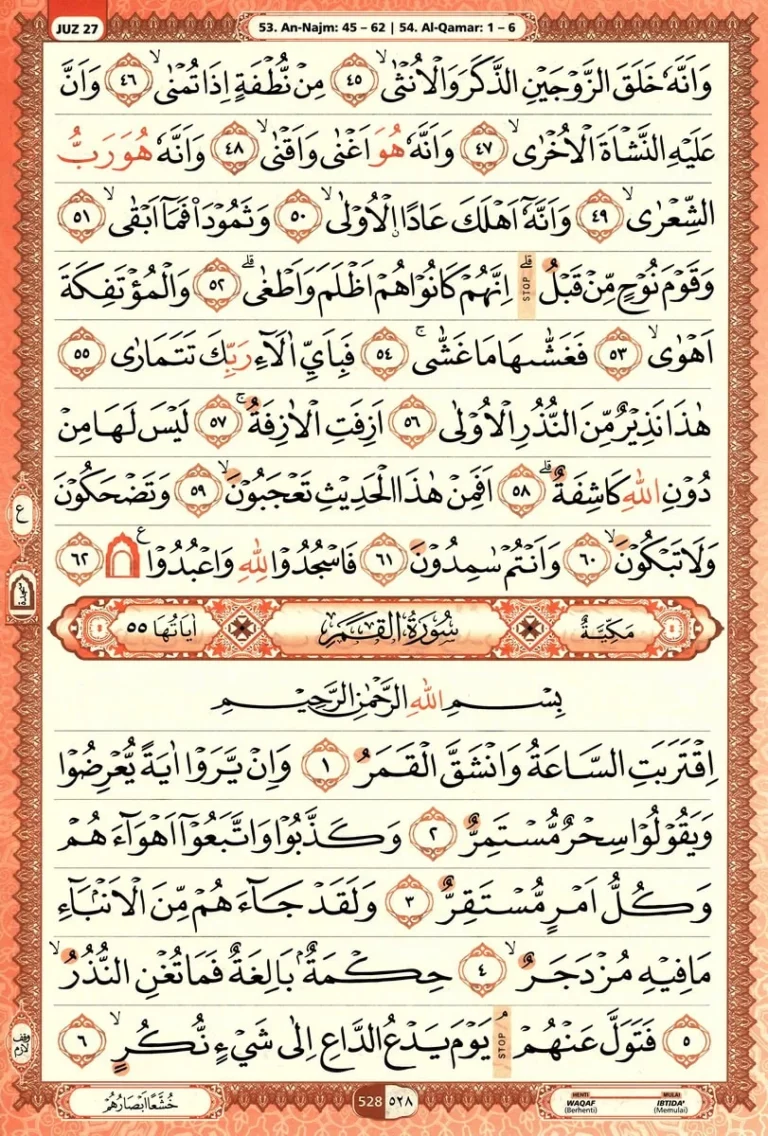 JUZ 27
53. An-Najm: 45 – 62 | 54. Al-Qamar: 1 – 6
وَاَنَّهٗ خَلَقَ الزَّوْجَيْنِ الذَّكَرَ وَالْاُنْثٰىۙ ٤٥ مِنْ نُّطْفَةٍ اِذَا تُمْنٰىۙ ٤٦ وَاَنَّ
عَلَيْهِ النَّشْاَةَ الْاُخْرٰىۙ ٤٧ وَاَنَّهٗ هُوَ اَغْنٰى وَاَقْنٰىۙ ٤٨ وَاَنَّهٗ هُوَ رَبُّ
الشِّعْرٰىۙ ٤٩ وَاَنَّهٗٓ اَهْلَكَ عَادًا ۨالْاُوْلٰىۙ ٥٠ وَثَمُوْدَا۟ فَمَآ اَبْقٰىۙ ٥١
وَقَوْمَ نُوْحٍ مِّنْ قَبْلُۗ STOP اِنَّهُمْ كَانُوْا هُمْ اَظْلَمَ وَاَطْغٰىۗ ٥٢ وَالْمُؤْتَفِكَةَ
اَهْوٰىۙ ٥٣ فَغَشّٰىهَا مَا غَشّٰىۚ ٥٤ فَبِاَيِّ اٰلَاۤءِ رَبِّكَ تَتَمَارٰى ٥٥
هٰذَا نَذِيْرٌ مِّنَ النُّذُرِ الْاُوْلٰى ٥٦ اَزِفَتِ الْاٰزِفَةُۚ ٥٧ لَيْسَ لَهَا مِنْ
دُوْنِ اللّٰهِ كَاشِفَةٌۗ ٥٨ اَفَمِنْ هٰذَا الْحَدِيْثِ تَعْجَبُوْنَۙ ٥٩ وَتَضْحَكُوْنَ
وَلَا تَبْكُوْنَۙ ٦٠ وَاَنْتُمْ سٰمِدُوْنَ ٦١ فَاسْجُدُوْا لِلّٰهِ وَاعْبُدُوْا ࣖ ٦٢
ع
سجدة
مَكِّيَّةٌ سُوْرَةُ الْقَمَرِ اٰيَاتُهَا ٥٥
بِسْمِ اللّٰهِ الرَّحْمٰنِ الرَّحِيْمِ
اِقْتَرَبَتِ السَّاعَةُ وَانْشَقَّ الْقَمَرُ ١ وَاِنْ يَّرَوْا اٰيَةً يُّعْرِضُوْا
وَيَقُوْلُوْا سِحْرٌ مُّسْتَمِرٌّ ٢ وَكَذَّبُوْا وَاتَّبَعُوْٓا اَهْوَاۤءَهُمْ
وَكُلُّ اَمْرٍ مُّسْتَقِرٌّ ٣ وَلَقَدْ جَاۤءَهُمْ مِّنَ الْاَنْۢبَاۤءِ
مَا فِيْهِ مُزْدَجَرٌۙ ٤ حِكْمَةٌ ۢ بَالِغَةٌ فَمَا تُغْنِ النُّذُرُۙ
٥ فَتَوَلَّ عَنْهُمْۘ STOP يَوْمَ يَدْعُ الدَّاعِ اِلٰى شَيْءٍ نُّكُرٍۙ ٦
وقف لازم
خُشَّعًا اَبْصَارُهُمْ
528 ٥٢٨
HENTI WAQAF (Berhenti)
MULAI IBTIDA' (Memulai)